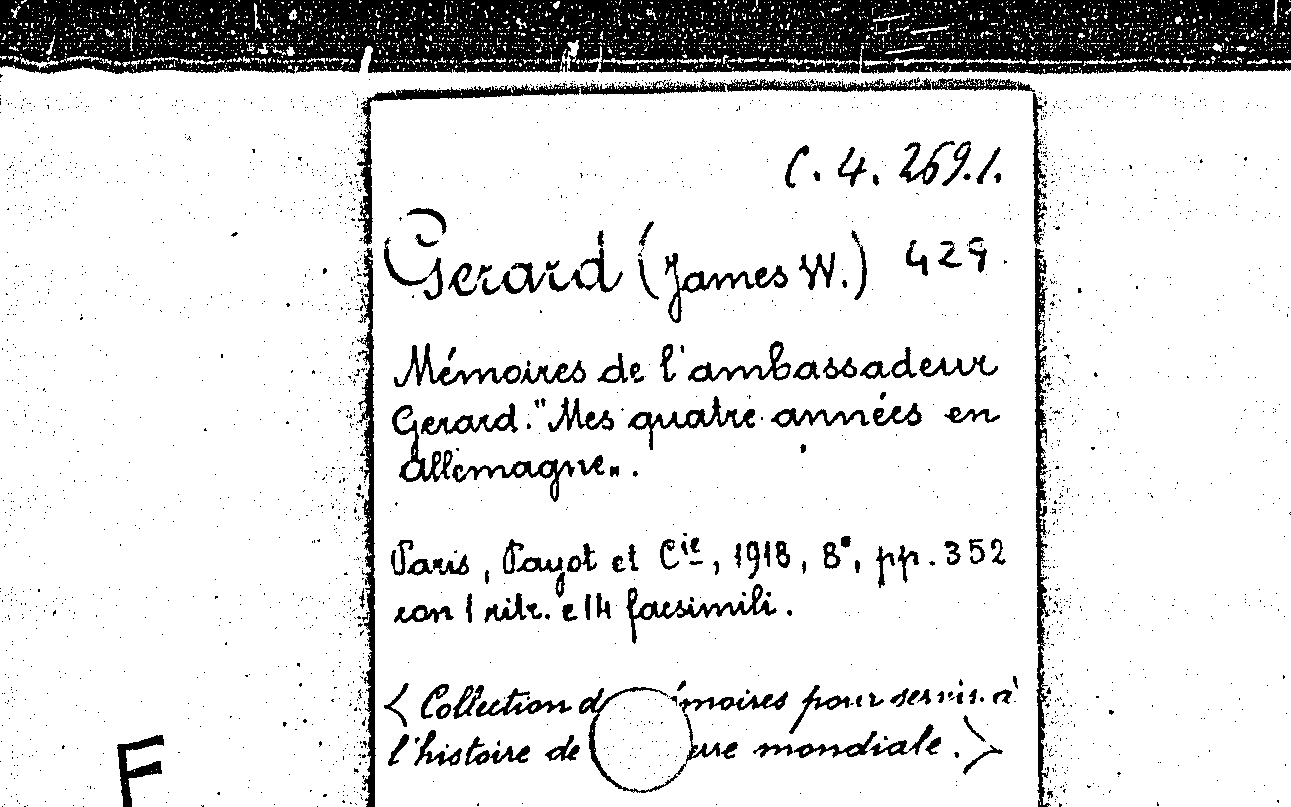 C. 4. 269.1.
Gerard (James W.) 429
Mémoires de l'ambassadeur
Gerard. "Mes quatre années en
allemagne".
Paris, Payot et Cie, 1918, 8°, pp. 352
con 1 ritr. e 14 facsimili.
< Collection d moires pour servir à
l'histoire de mondiale. >
F